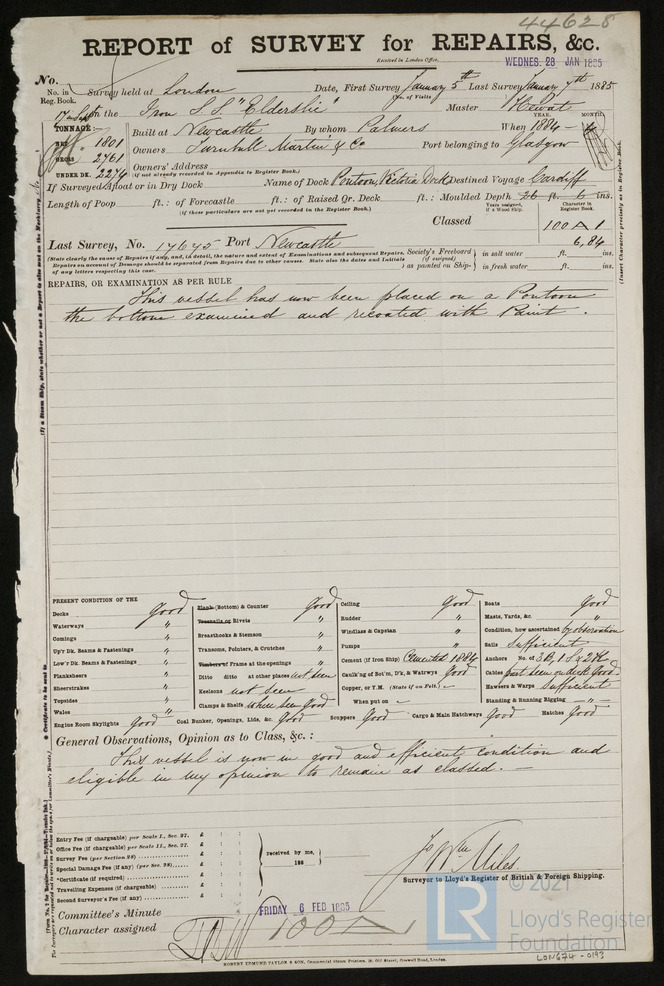 44628
REPORT of SURVEY for REPAIRS, &c.
Received in London Office, WEDNES. 28 JAN 1885
No.
No. in Reg. Book. Survey held at London Date, First Survey January 5th Last Survey January 7th 1885
No. of Visits
on the Iron S.S. "Elderslie" Master
TONNAGE:— YEAR. MONTH.
NET 1801 Built at Newcastle By whom Palmers When 1884 -
GROSS 2761 Owners Turnbull Martin & Co Port belonging to Glasgow
UNDER DK. 2274 Owners' Address
(if not already recorded in Appendix to Register Book.)
If Surveyed Afloat or in Dry Dock Name of Dock Pontoon, Victoria Dock Destined Voyage Cardiff
Length of Poop ft.: of Forecastle ft.: of Raised Qr. Deck ft.: Moulded Depth 26 ft. 6 ins.
(if these particulars are not yet recorded in the Register Book.) Years assigned, if a Wood Ship. Character in Register Book.
Classed 100 A 1
6,84
Last Survey, No. 17675 Port Newcastle
(State clearly the cause of Repairs if any, and, in detail, the nature and extent of Examinations and subsequent Repairs. Repairs on account of Damage should be separated from Repairs due to other causes. State also the dates and Initials of any letters respecting this case.
Society's Freeboard (if assigned) as painted on Ship— in salt water ft. ins.
in fresh water ft. ins.
(Insert Character precisely as in Register Book.
REPAIRS, OR EXAMINATION AS PER RULE
This vessel has now been placed on a Pontoon
the bottom examined and recoated with Paint.
PRESENT CONDITION OF THE
Decks good
Waterways "
Comings "
Up'r Dk. Beams & Fastenings "
Low'r Dk. Beams & Fastenings "
Planksheers "
Sheerstrakes "
Topsides "
Wales "
Engine Room Skylights Good
Plank (Bottom) & Counter Good
Treenails or Rivets "
Breasthooks & Stemson "
Transoms, Pointers, & Crutches "
Timbers of Frame at the openings "
Ditto ditto at other places not seen
Keelsons not seen
Clamps & Shelfs where seen good
Coal Bunker, Openings, Lids, &c. Good
Ceiling Good
Rudder "
Windlass & Capstan "
Pumps "
Cement (if Iron Ship) Cemented 1884
Caulk'ng of Bot'm, D'k, & Watrwys Good
Copper, or Y.M. (State if on Felt) -
When put on -
Scuppers Good
Cargo & Main Hatchways Good
Boats Good
Masts, Yards, &c. "
Condition, how ascertained by observation
Sails Sufficient
Anchors No. of 3B, 1S & 2K
Cables Good
Hawsers & Warps Sufficient
Standing & Running Rigging - " -
Hatches Good
General Observations, Opinion as to Class, &c.:
This vessel is now in good and efficient condition and
eligible in my opinion to remain as classed.
Entry Fee (if chargeable) per Scale I., Sec. 27. £ : :
Office Fee (if chargeable) per Scale II., Sec. 27. £ : :
Survey Fee (per Section 28) £ : :
Special Damage Fee (if any) (per Sec. 28) £ : :
*Certificate (if required) £ : :
Travelling Expenses (if chargeable) £ : :
Second Surveyor's Fee (if any) £ : :
received by me,
188
Jo Wm Miles
Surveyor to Lloyd's Register of British & Foreign Shipping.
Committee's Minute FRIDAY 6 FEB 1885
Character assigned 100 A 1
ROBERT EDMUND TAYLOR & SON, Commercial Steam Printers, 19, Old Street, Goswell Road, London.
© 2021
LR
Lloyd's Register
Foundation
LON674-0193